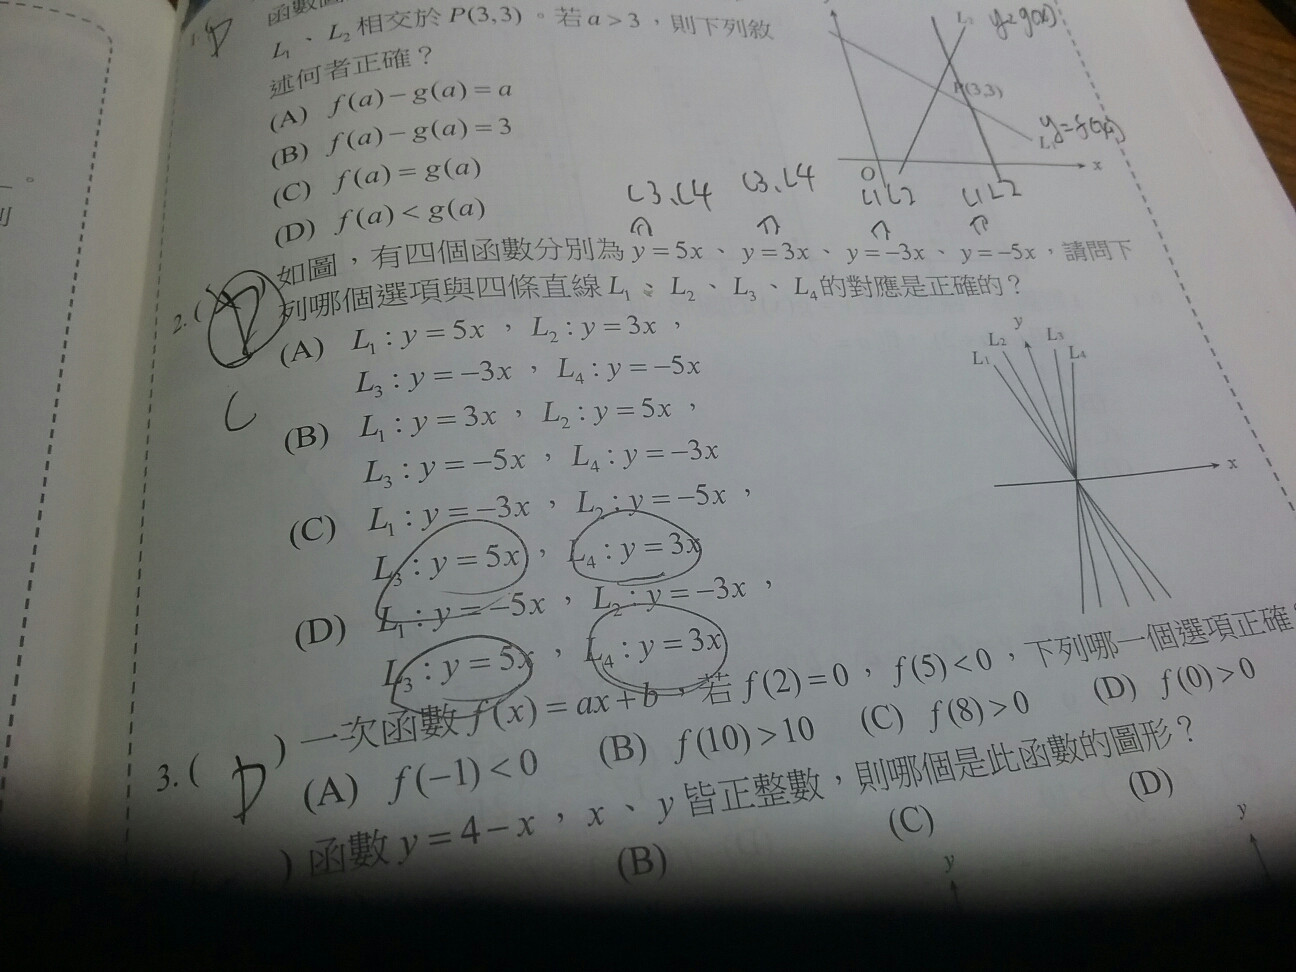 函數
L₁、L₂相交於P(3,3)。若a>3,則下列敘
述何者正確?
(A) f(a)−g(a)=a
(B) f(a)−g(a)=3
(C) f(a)=g(a)
(D) f(a)<g(a)
1.
D
y=g(x)
P(3,3)
y=f(x)
L₁
O
x
L3、L4
L3、L4
L1L2
L1L2
2.(
如圖,有四個函數分別為y=5x、y=3x、y=−3x、y=−5x,請問下
列哪個選項與四條直線L₁、L₂、L₃、L₄的對應是正確的?
(A) L₁:y=5x,L₂:y=3x,
L₃:y=−3x,L₄:y=−5x
(B) L₁:y=3x,L₂:y=5x,
L₃:y=−5x,L₄:y=−3x
(C) L₁:y=−3x,L₂:y=−5x,
L₃:y=5x,L₄:y=3x
(D) L₁:y=−5x,L₂:y=−3x,
L₃:y=5x,L₄:y=3x
C
y
L₁
L₂
L₃
L₄
x
3.( D )一次函數f(x)=ax+b,若f(2)=0,f(5)<0,下列哪一個選項正確?
(A) f(−1)<0 (B) f(10)>10 (C) f(8)>0 (D) f(0)>0
)函數y=4−x,x、y皆正整數,則哪個是此函數的圖形?
(B)
(C)
(D)
y
y